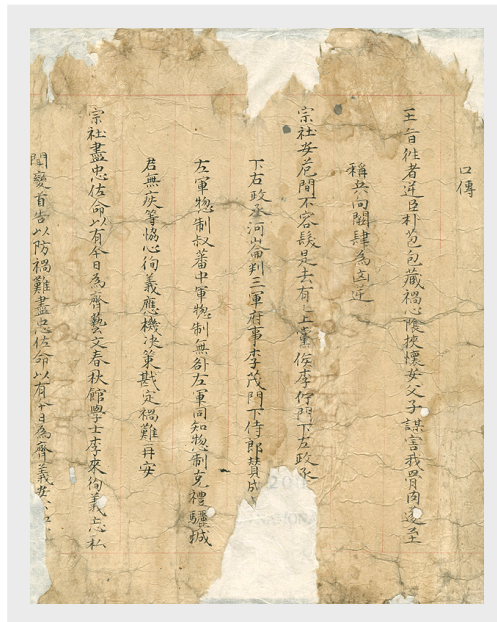 口傳
王旨徃者逆臣朴苞包藏禍心陰挾懷安父子謀害我骨肉遂至
稱兵向闕肆為㐫逆
宗社安危間不容髮是去有上黨侯李佇門下左政丞
下右政丞河崙判三軍府事李茂門下侍郎賛成
左軍摠制叔蕃中軍摠制無咎左軍同知摠制克禮驪城
君無疾等協心徇義應機决策戡定禍難再安
宗社盡忠佐命以有今日為齊藝文春秋館學士李來徇義忘私
聞變首告以防禍難盡忠佐命以有今日為齊義安